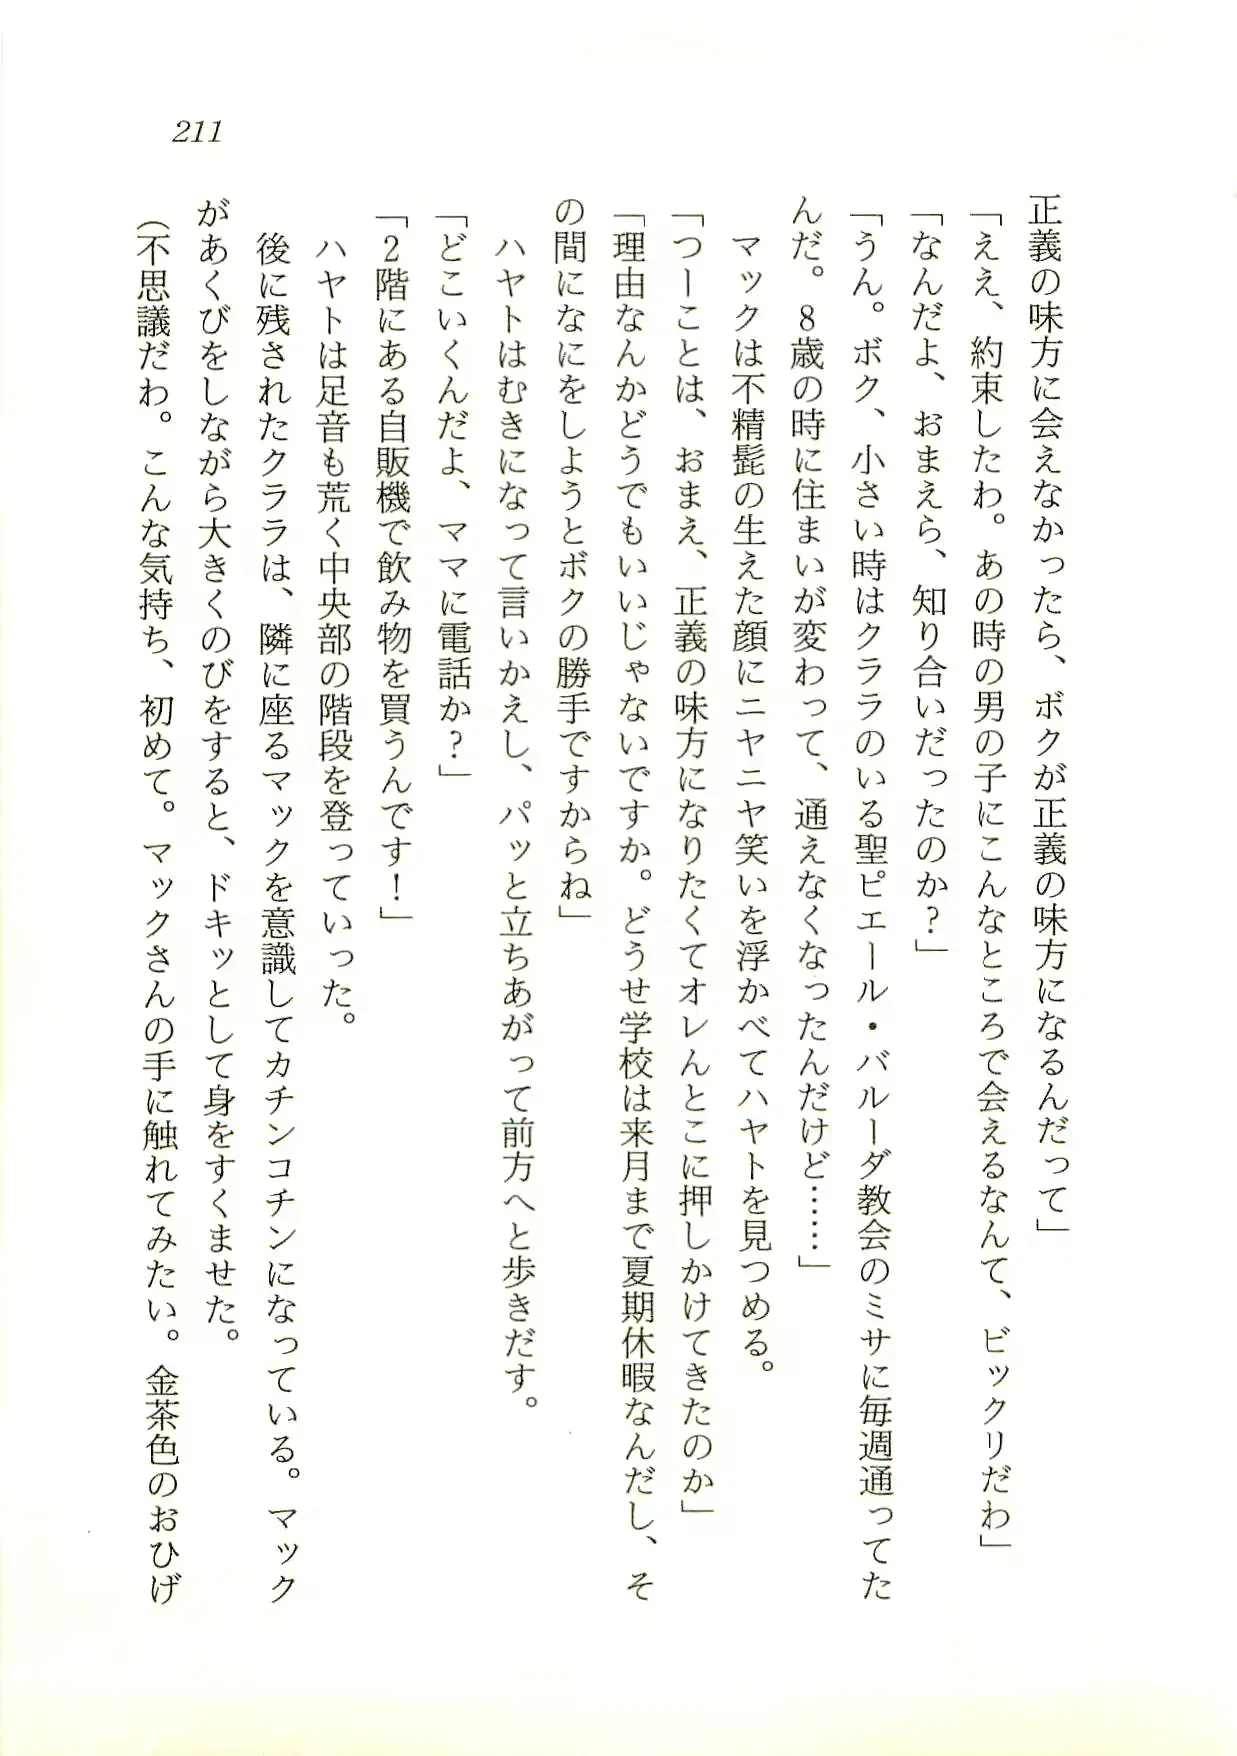 211
正義の味方に会えなかったら、ボクが正義の味方になるんだって」
「ええ、約束したわ。あの時の男の子にこんなところで会えるなんて、ビックリだわ」
「なんだよ、おまえら、知り合いだったのか？」
「うん。ボク、小さい時はクララのいる聖ピエール・バルーダ教会のミサに毎週通ってた
んだ。8歳の時に住まいが変わって、通えなくなったんだけど……」
マックは不精髭の生えた顔にニヤニヤ笑いを浮かべてハヤトを見つめる。
「つーことは、おまえ、正義の味方になりたくてオレんとこに押しかけてきたのか」
「理由なんかどうでもいいじゃないですか。どうせ学校は来月まで夏期休暇なんだし、そ
の間になにをしようとボクの勝手ですからね」
ハヤトはむきになって言いかえし、パッと立ちあがって前方へと歩きだす。
「どこいくんだよ、ママに電話か？」
「2階にある自販機で飲み物を買うんです！」
ハヤトは足音も荒く中央部の階段を登っていった。
後に残されたクララは、隣に座るマックを意識してカチンコチンになっている。マック
があくびをしながら大きくのびをすると、ドキッとして身をすくませた。
（不思議だわ。こんな気持ち、初めて。マックさんの手に触れてみたい。金茶色のおひげ